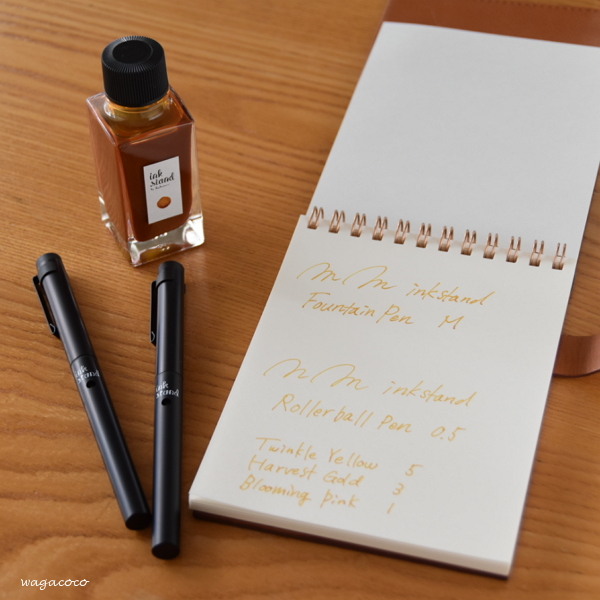 ink
stand
inkstand
Fountain Pen M
inkstand
Rollerball Pen 0.5
Twinkle Yellow 5
Harvest Gold 3
Blooming Pink 1
ink
stand
ink
stand
wagacoco